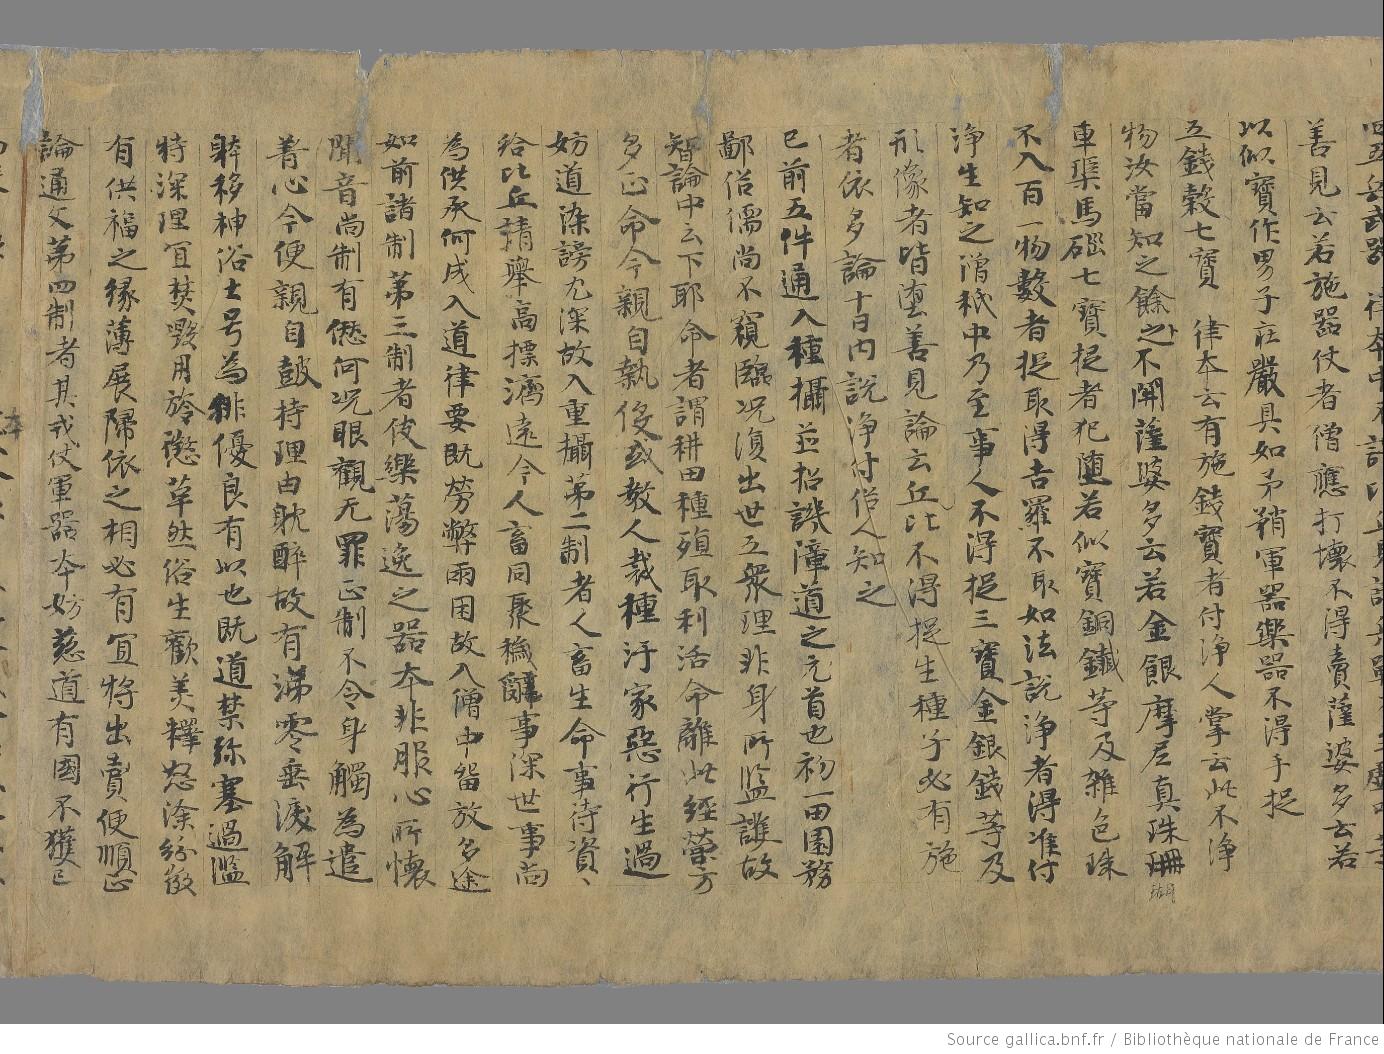 善見云若施器仗者僧應打壞不得賣薩婆多云若
以似寶作男子莊嚴具如矛矟軍器樂器不得手捉
五錢穀七寶 律本云有施錢寶者付淨人掌云此不淨
物汝當知之餘之不開薩婆多云若金銀摩尼真珠珊瑚
車璖馬碯七寶捉者犯墮若似寶銅鐵等及雜色珠
不入百一物數者捉取得吉羅不取如法說淨者得准付
淨生知之僧祇中乃至事人不得捉三寶金銀錢等及
形像者皆墮善見論云丘比不得捉生種子必有施
者依多論十日內說淨付俗人知之
已前五件通入種攝並招譏障道之元首也初一田園務
鄙俗儒尚不窺臨況復出世五眾理非身所監誰故
智論中云下耶命者謂耕田種殖取利活命離此經營方
多正命今親自執役或教人栽種汙家惡行生過
妨道染謗尤深故入重攝第二制者人畜生命事待資
給比丘清舉高摽濟遠今人畜同聚穢 事深世事尚
為供承何成入道律要既勞弊兩困故入僧中留放多途
如前諸制第三制者伎樂蕩逸之器本非服心所懷
聞音尚制有僽何況眼觀无罪正制不令身觸為遣
善心今便親自皷持理由躭醉故有涕零垂淚解
躰移神俗士号為緋優良有以也既道禁弥塞過濫
特深理宜焚毀用旍懲革然俗生歡美釋怒塗紛
有供福之緣薄展歸依之相必有宜將出賣便順正
論通文第四制者其戎仗軍器本妨慈道有國不獲已